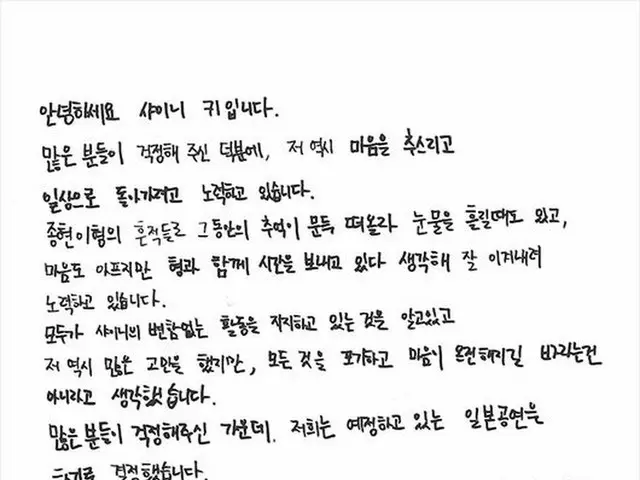 안녕하세요 샤이니 키입니다.
많은 분들이 걱정해 주신 덕분에, 저 역시 마음을 추스리고
일상으로 돌아가려고 노력하고 있습니다.
종현이형의 흔적들로 그동안의 추억이 문득 떠올라 눈물을 흘릴때도 있고,
마음도 아프지만 형과 함께 시간을 보내고 있다 생각해 잘 이겨내려
노력하고 있습니다.
모두가 샤이니의 변함없는 활동을 지지하고 있는 것을 알고있고
저 역시 많은 고민을 했지만, 모든 것을 포기하고 마음이 온전해지길 바라는건
아니라고 생각했습니다.
많은 분들이 걱정해주신 가운데, 저희는 예정하고 있는 일본공연을
하기로 결정했습니다.